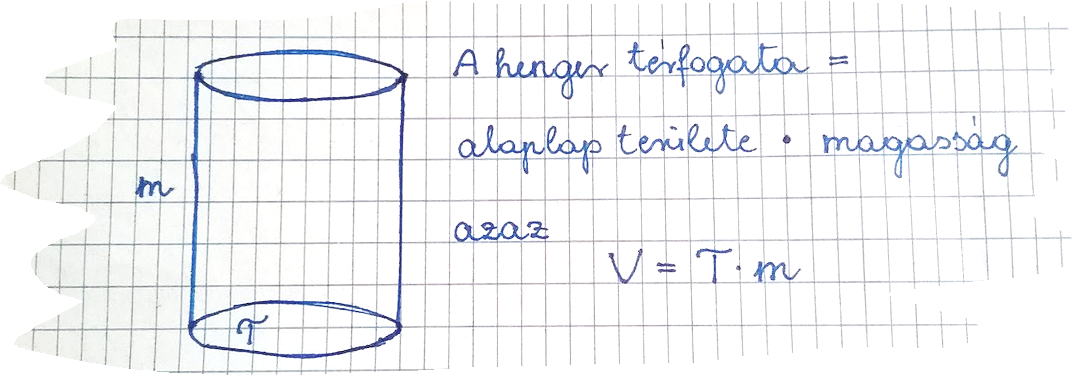 A henger térfogata =
alaplap területe · magasság
m
azaz
V = T · m
T